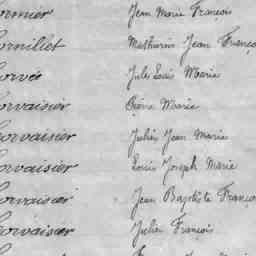 ormier Jean Marie François
orniliet Mathurin Jean Franço
orvée Jules Louis Marie
orvaisier Pierre Marie
orvaisier Julien Jean Marie
orvaisier Louis Joseph Marie
orvaisier Jean Baptiste Franço
orvaisier Julien François